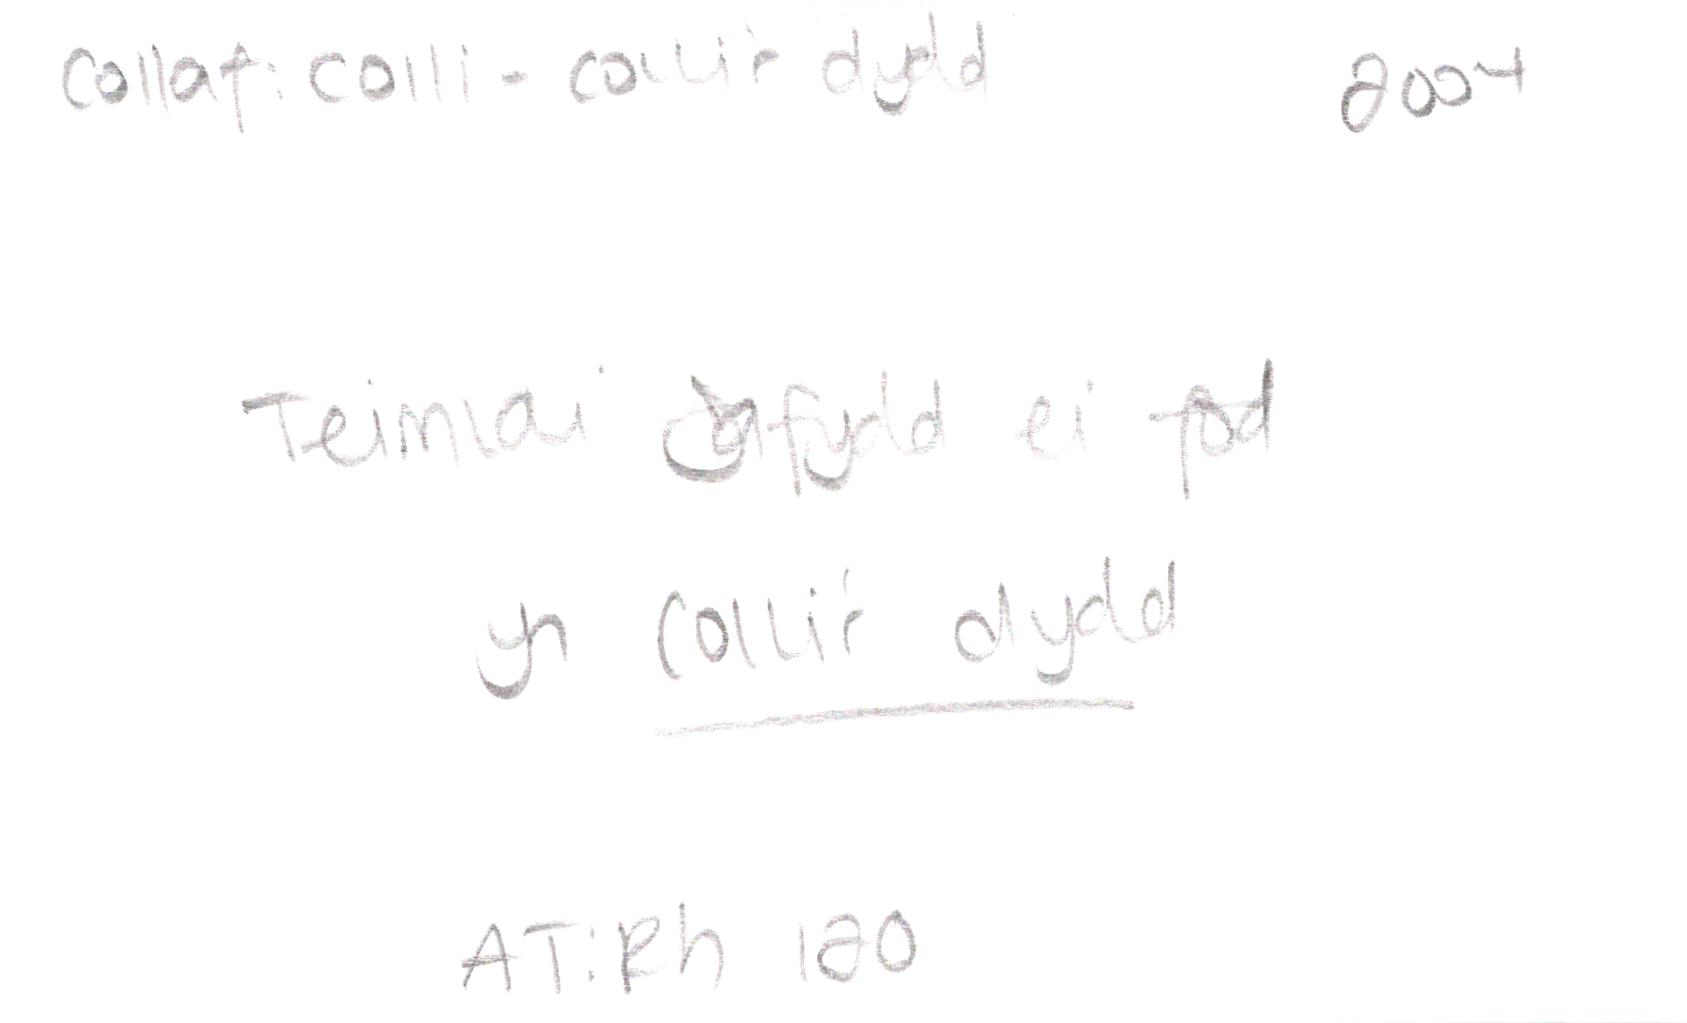 Collaf: colli - colli'r dydd 2004
Teimlai Dafydd ei fod
yn colli'r dydd
AT:Rh 120